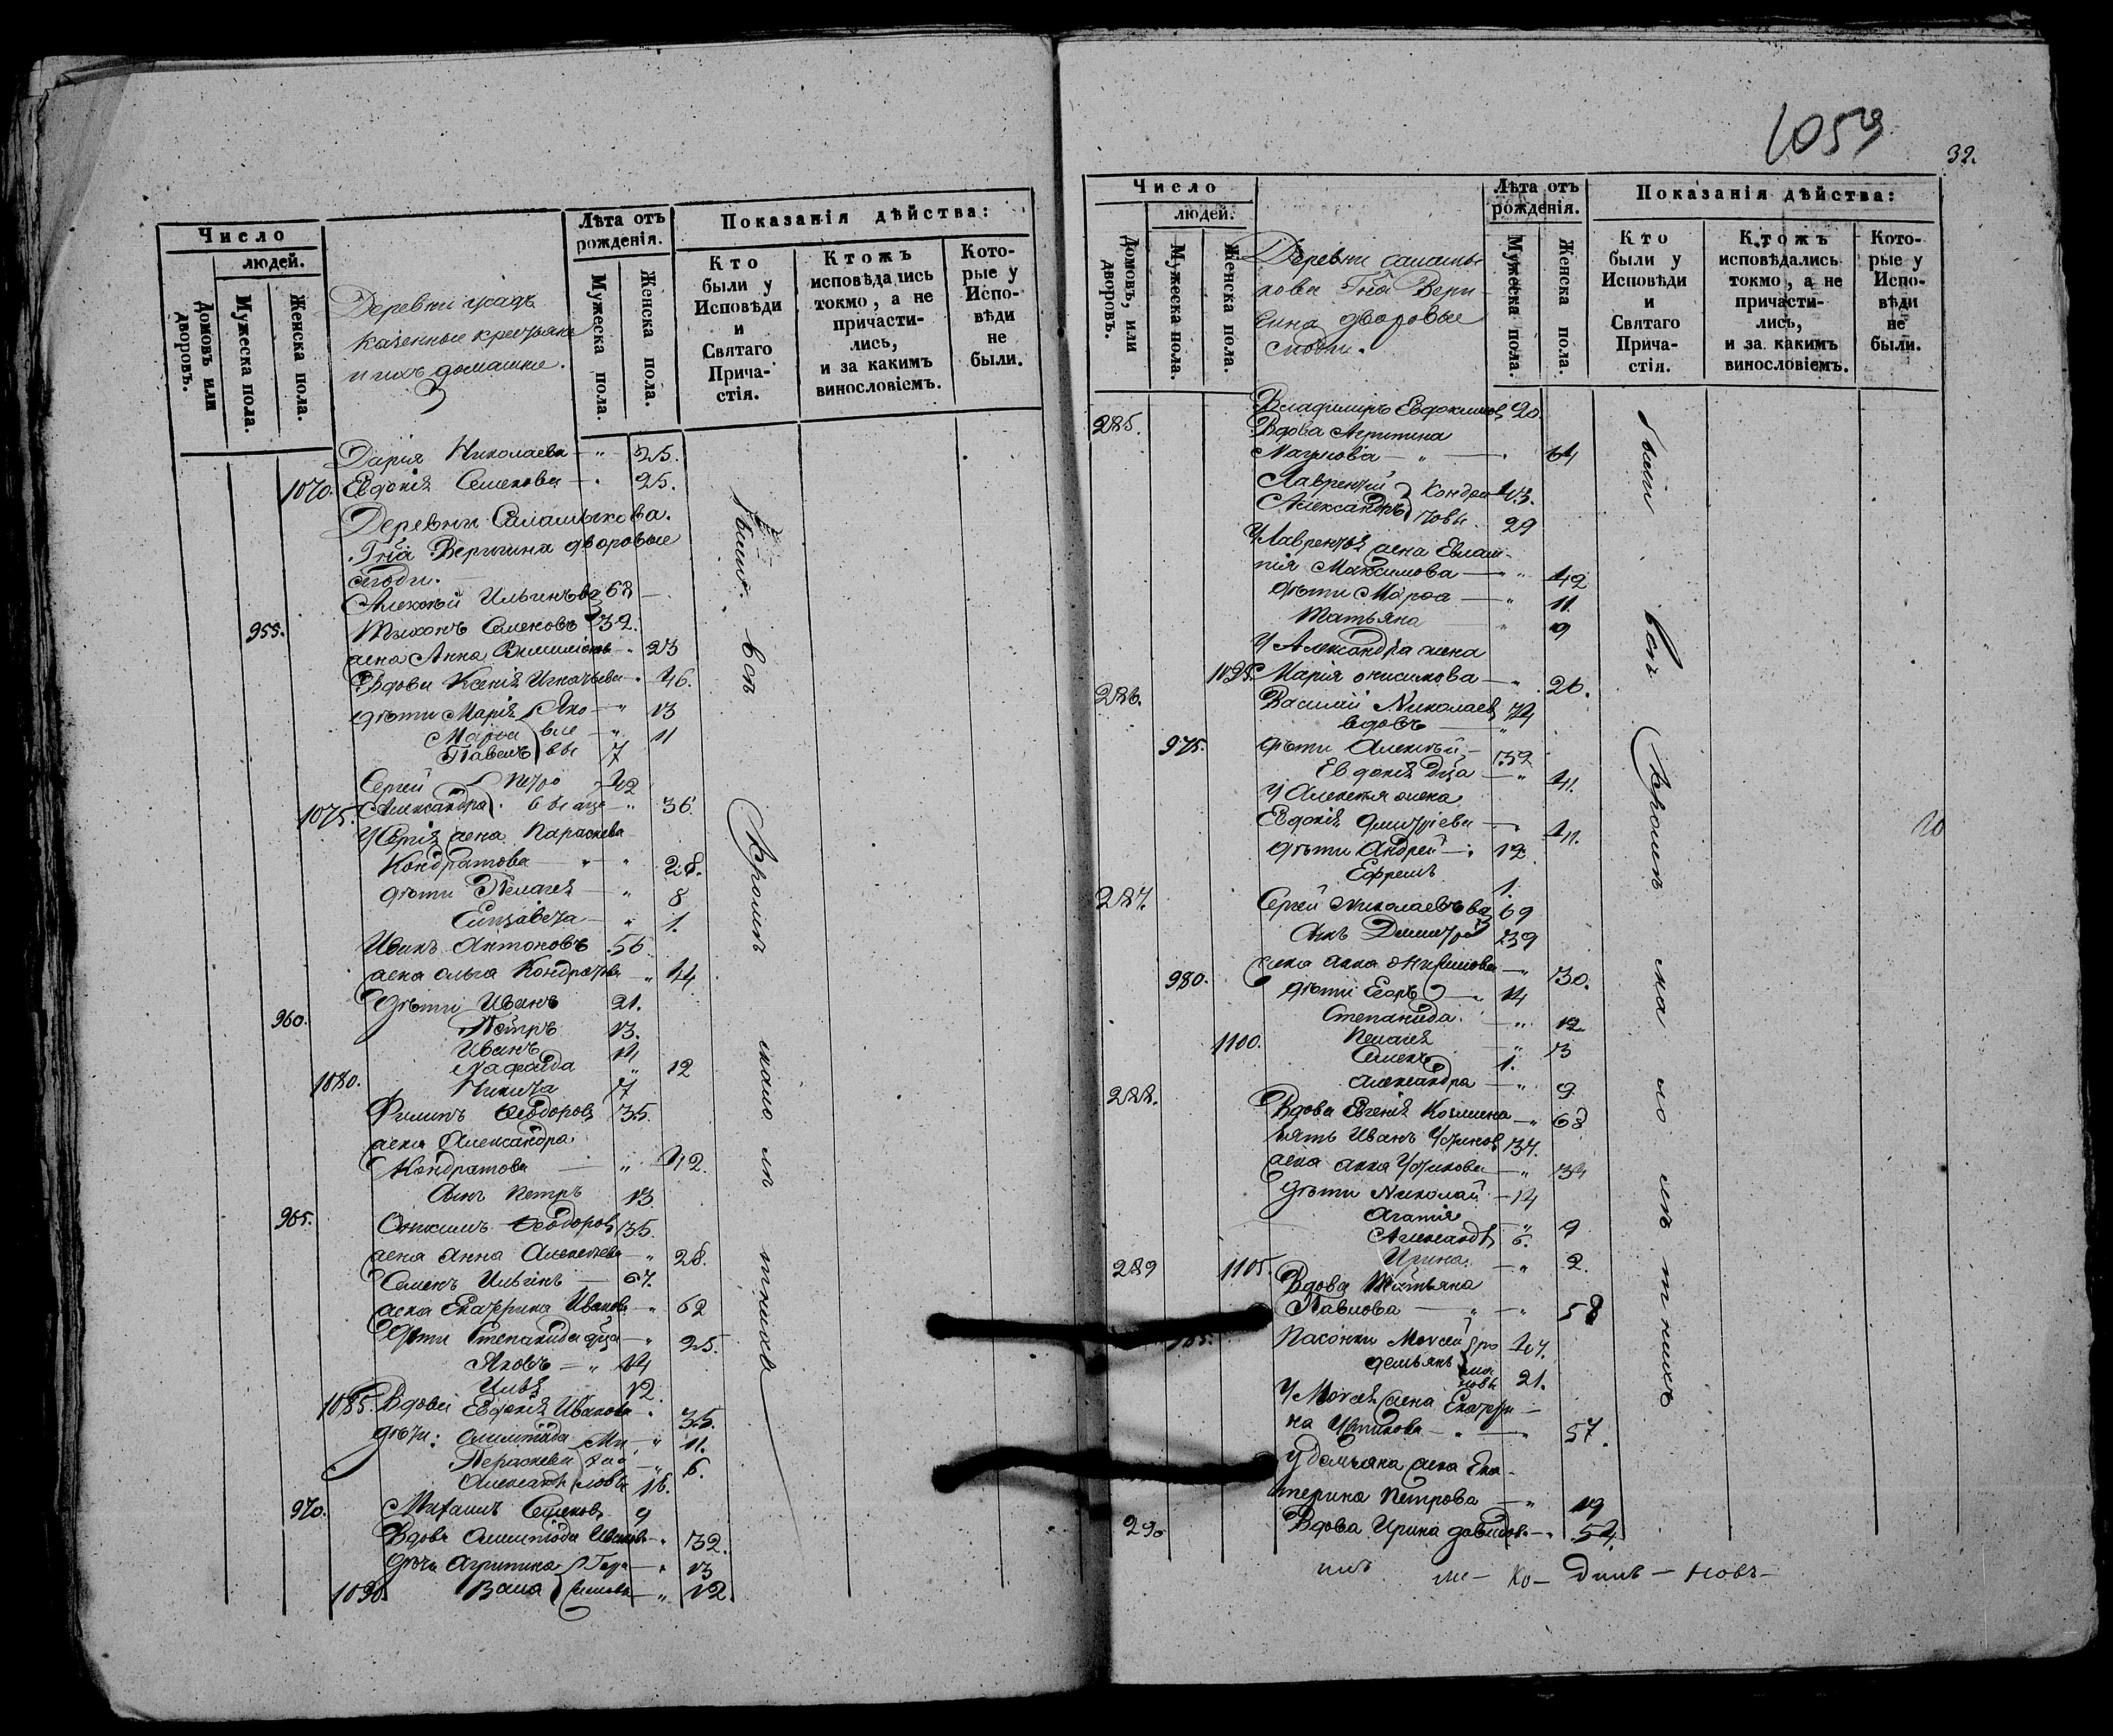 Число
людей.
Домовъ или дворовъ.
Мужеска пола.
Женска пола.
Деревни
казенные крестьяне
и ихъ домашніе.
Лѣта отъ рожденія.
Мужеска пола.
Женска пола.
Показанія дѣйства:
Кто были у Исповѣди и Святаго Причастія.
Ктожъ исповѣдались токмо, а не причастились, и за какимъ винословіемъ.
Которые у Исповѣди не были.
Дарія Николаева — " 25.
1070. Евдокія Семенова — " 25.
Деревни
Гна Веригина дворовые
Алексѣй Ильинъ 68
955. Тихонъ Семеновъ 32.
жена Анна — " 23
Вдова Ксенія Игнатьева " 46.
дѣти Марія — " 13
Марѳа — " 11
Павелъ 7
Сергей Петро 42
1075. Александра " 36.
У Сергія жена Параскева
Кондратова — " " 28.
дѣти Пелагея — " 8
Елизавета — " 1.
Иванъ Антоновъ 56
жена Ольга Кондратова " 44
дѣти Иванъ 21.
960. Петръ 13.
Иванъ
" 12
1080. Никита 7
Филиппъ Ѳеодоровъ 35.
жена Александра
Кондратова — " 42.
Сынъ Петръ 13.
965. Ѳеодоровъ 35.
жена Анна Алексѣева — " 28.
Семенъ Ильинъ — 67.
жена Екатерина Иванова — " 62
дѣти Степанида дца — " 25.
Яковъ — " 14
Илья 12.
1085. Вдова Евдокія Иванова " 35.
дѣти: " 11.
Параскева " 6.
Александръ 16.
970. Михаилъ Семеновъ 9
Вдова Иванова " 32.
дочь Агрипина — " 13
1090. " 12
были всѣ кромѣ мало лѣтнихъ
1059
32.
Число
людей.
Домовъ, или дворовъ.
Мужеска пола.
Женска пола.
Деревни
Гна Вери-
гина дворовые
Лѣта отъ рожденія.
Мужеска пола.
Женска пола.
Показанія дѣйства:
Кто были у Исповѣди и Святаго Причастія.
Ктожъ исповѣдались токмо, а не причастились, и за какимъ винословіемъ.
Которые у Исповѣди не были.
Владимиръ Евдокимовъ 20.
285. Вдова Агрипина
Наумова — " — 64
Лаврентій Кондра 43.
Александръ товы 29
У Лаврентья жена Евлам-
пія Максимова — " 42
дѣти Марѳа — " 11.
Татьяна " 9
У Александра жена
1095. Марія Онисимова — " 26.
286. Василій Николаевъ 74
вдовъ — "
975. дѣти Алексѣй — 39
Евдокія дца — " 41.
У Алексѣя жена
Евдокія Дмитріева — " 41.
дѣти Андрей — " 12
Ефремъ 1.
287. Сергей Николаевъ вд 69
Сынъ Димитрій 39
жена Анна — " 30.
980. дѣти Егоръ — " 14
Степанида — " 12
1100. Пелагея — " 3
Семенъ 1.
Александра — " 9.
288. Вдова Евгенія Козмина — " 63
зять Иванъ Устиновъ 37.
жена Анна Устинова — " 34
дѣти Николай — 14
Агафія " 9
Александръ 6.
1105. Ирина — " 2.
289 Вдова Татьяна
Павлова — " — " 58
985. Пасонки Моисей 47.
Демьянъ 21.
У Моисея жена Екатери-
на Устинова — " — 57.
У Демьяна жена Ека-
терина Петрова — " 19
290 Вдова Ирина Давидова — " 54
были всѣ кромѣ мало лѣтнихъ
— Ко — Діик — новъ —